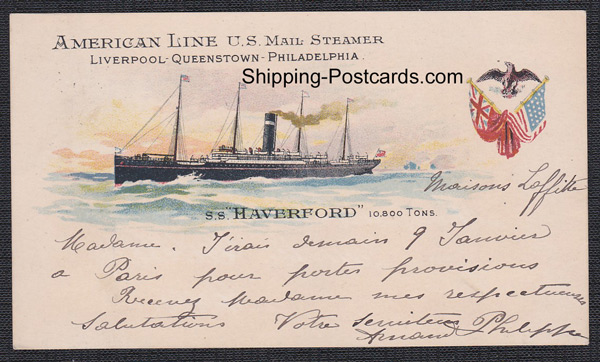 AMERICAN LINE U.S. MAIL STEAMER
LIVERPOOL-QUEENSTOWN-PHILADELPHIA.
Shipping-Postcards.com
Maisons Laffitte
S.S. "HAVERFORD" 10.800 TONS.
Madame. J'irais demain 9 Janvier
a Paris pour porter provisions
Recevez Madame mes respectueuses
Salutations Votre serviteur
Armand Philippe